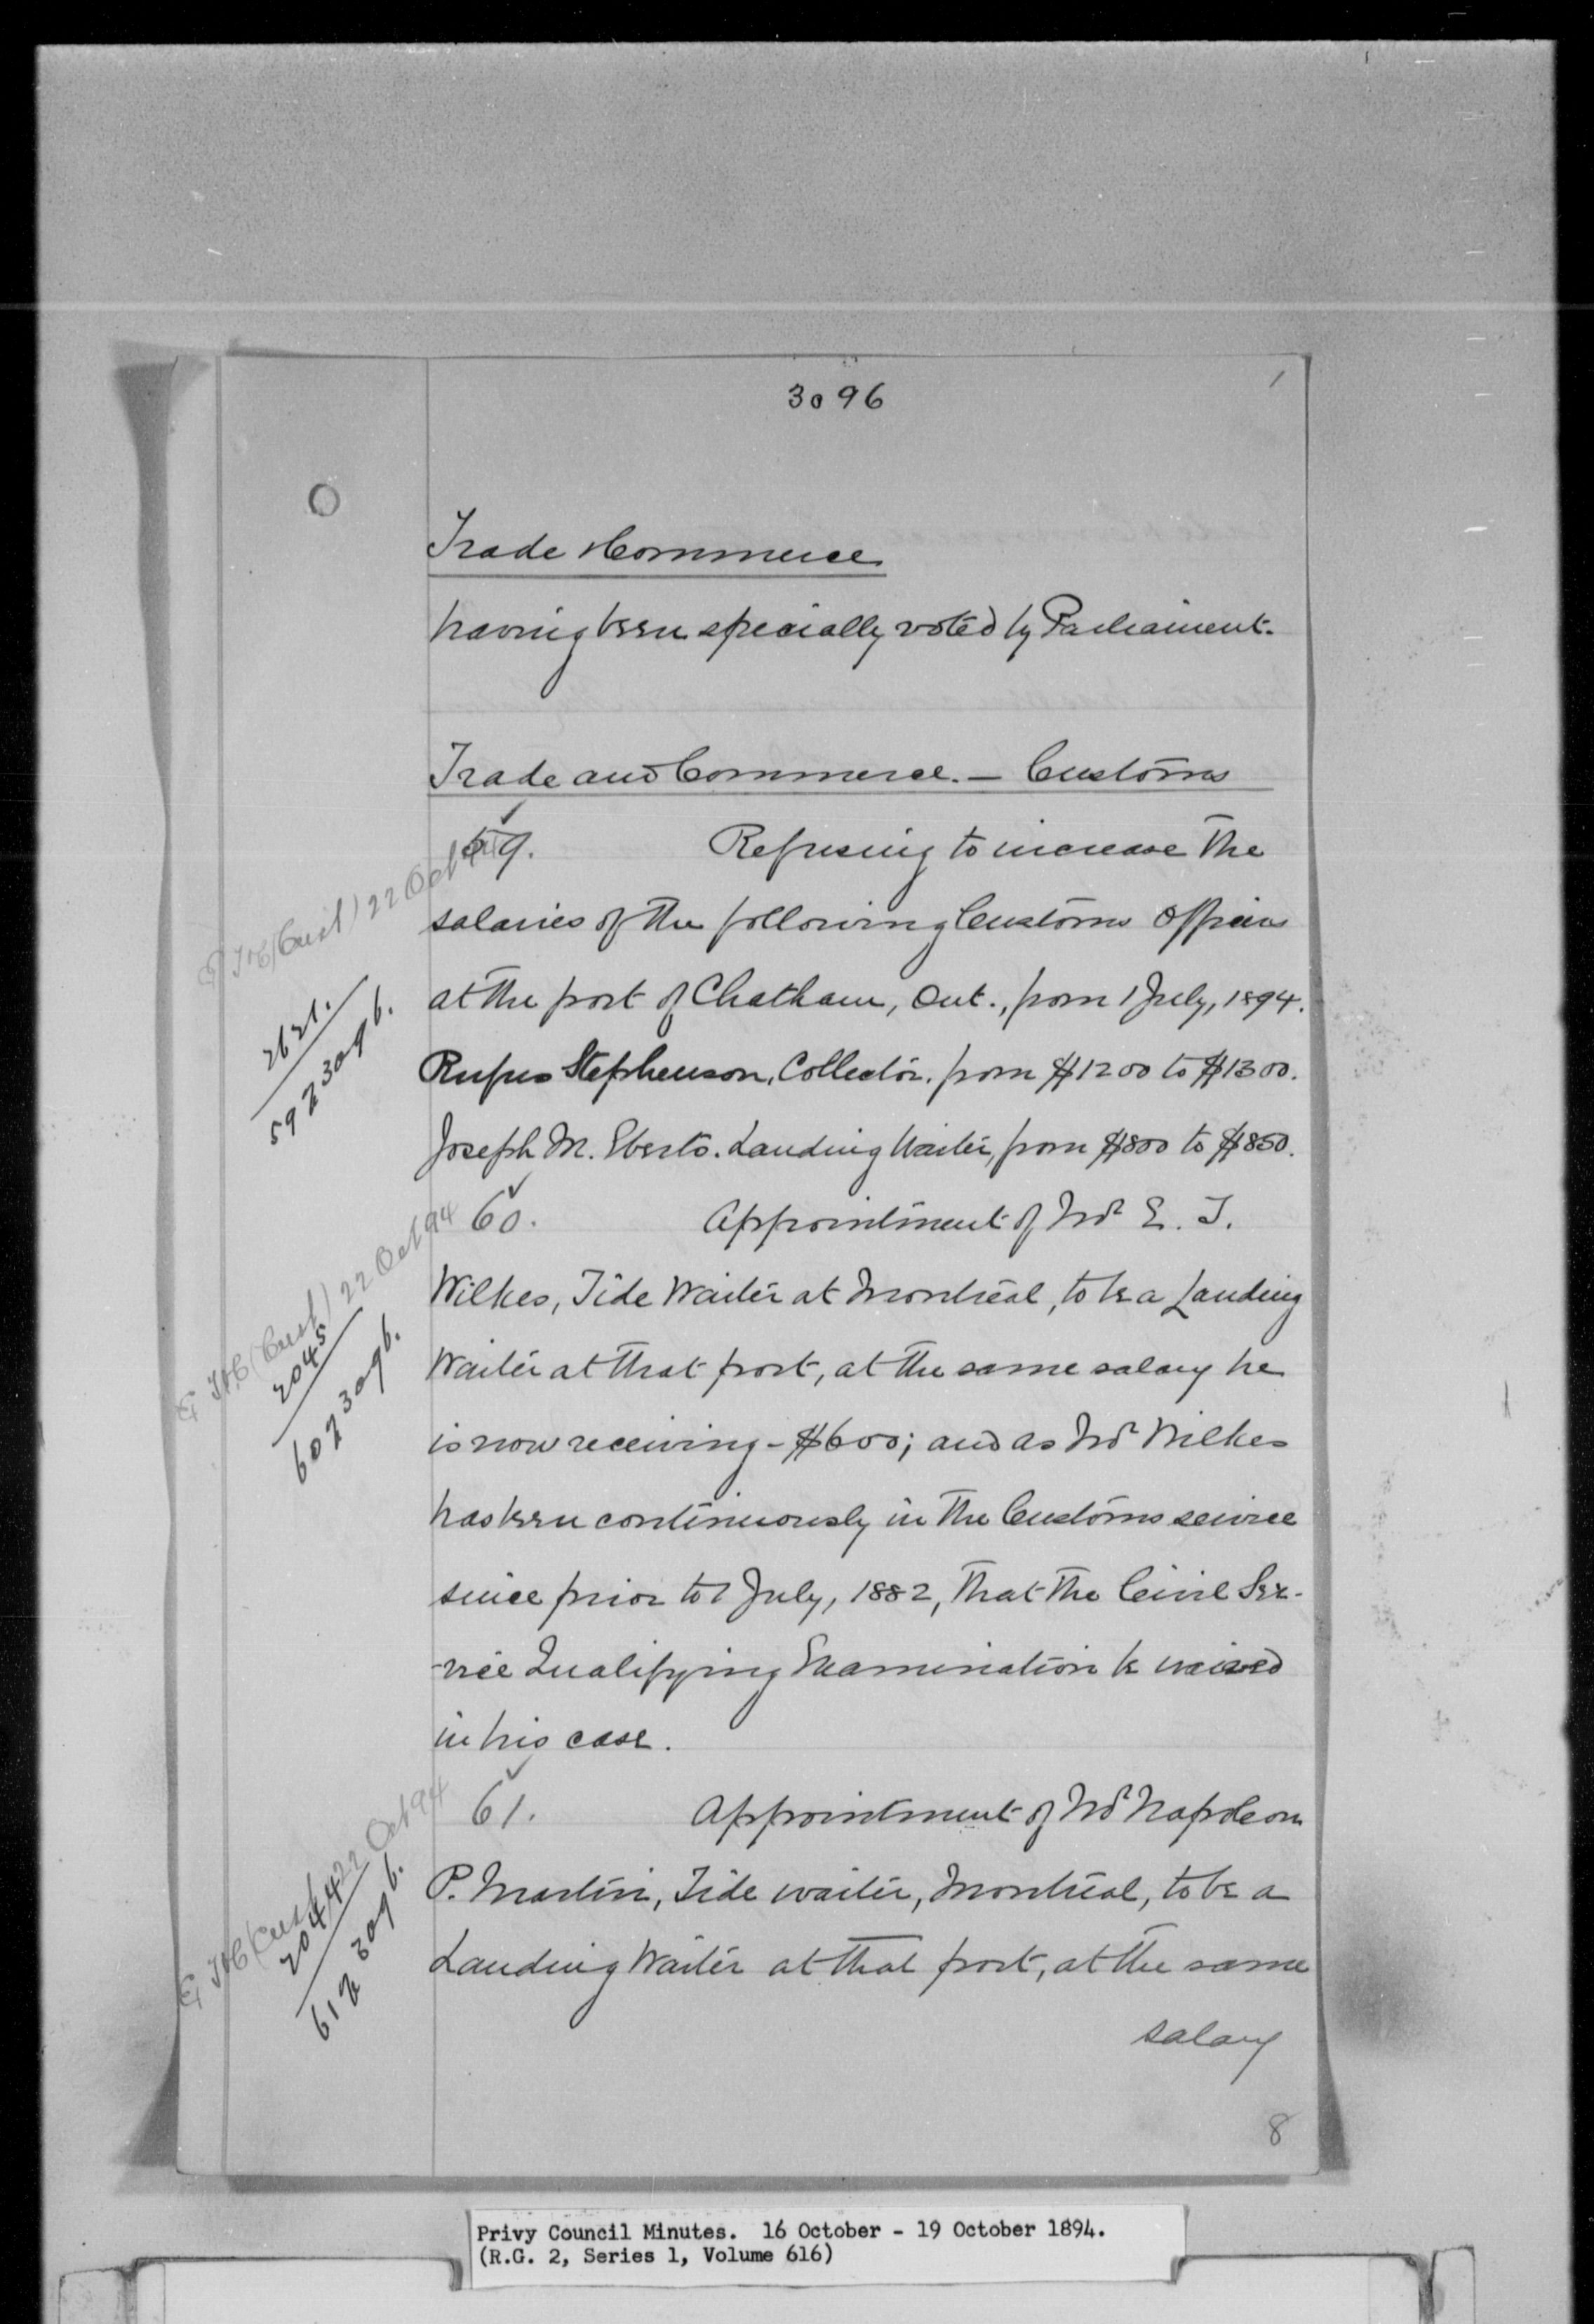 3096
1
Trade & Commerce
having been specially voted by Parliament.
Trade and Commerce. — Customs
59. Refusing to increase the
salaries of the following Customs Officers
at the port of Chatham, Ont., from 1 July, 1894.
Rufus Stephenson, Collector, from $1200 to $1300.
Joseph M. Eberts. Landing Waiter, from $800 to $850.
60. Appointment of Mr E. T.
Wilkes, Tide Waiter at Montreal, to be a Landing
Waiter at that port, at the same salary he
is now receiving - $600; and as Mr Wilkes
has been continuously in the Customs service
since prior to 1 July, 1882, that the Civil Ser-
-vice Qualifying Examination be waived
in his case.
61. Appointment of Mr Napoleon
P. Martin, Tide waiter, Montreal, to be a
Landing Waiter at that port, at the same
salary
8
T&C (Cust) 22 Oct 94
2621.
59 3096.
T&C (Cust) 22 Oct 94
2045
60 3096.
T&C (Cust) 22 Oct 94
2044
61 3096.
Privy Council Minutes. 16 October - 19 October 1894.
(R.G. 2, Series 1, Volume 616)